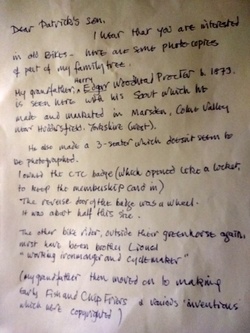 Dear Patrick's son,
I hear that you are interested
in old Bikes - here are some photocopies
of part of my family tree.
Harry
My grandfather, Edgar Woodhead Procter b. 1873.
is seen here with his Scout which he
made and marketed in Marsden, Colne Valley
near Huddersfield. Yorkshire (West).
He also made a 3-seater which doesn't seem to
be photographed.
I owned the CTC badge (which opened like a locket,
to keep the membership card in)
The reverse door of the badge was a wheel.
It was about half this size.
The other bike rider, outside their greenhouse again,
must have been brother Lionel
"working ironmonger and cycle maker"
(my grandfather then moved on to making
early Fish and Chip Friers & various inventions
which were copyrighted)